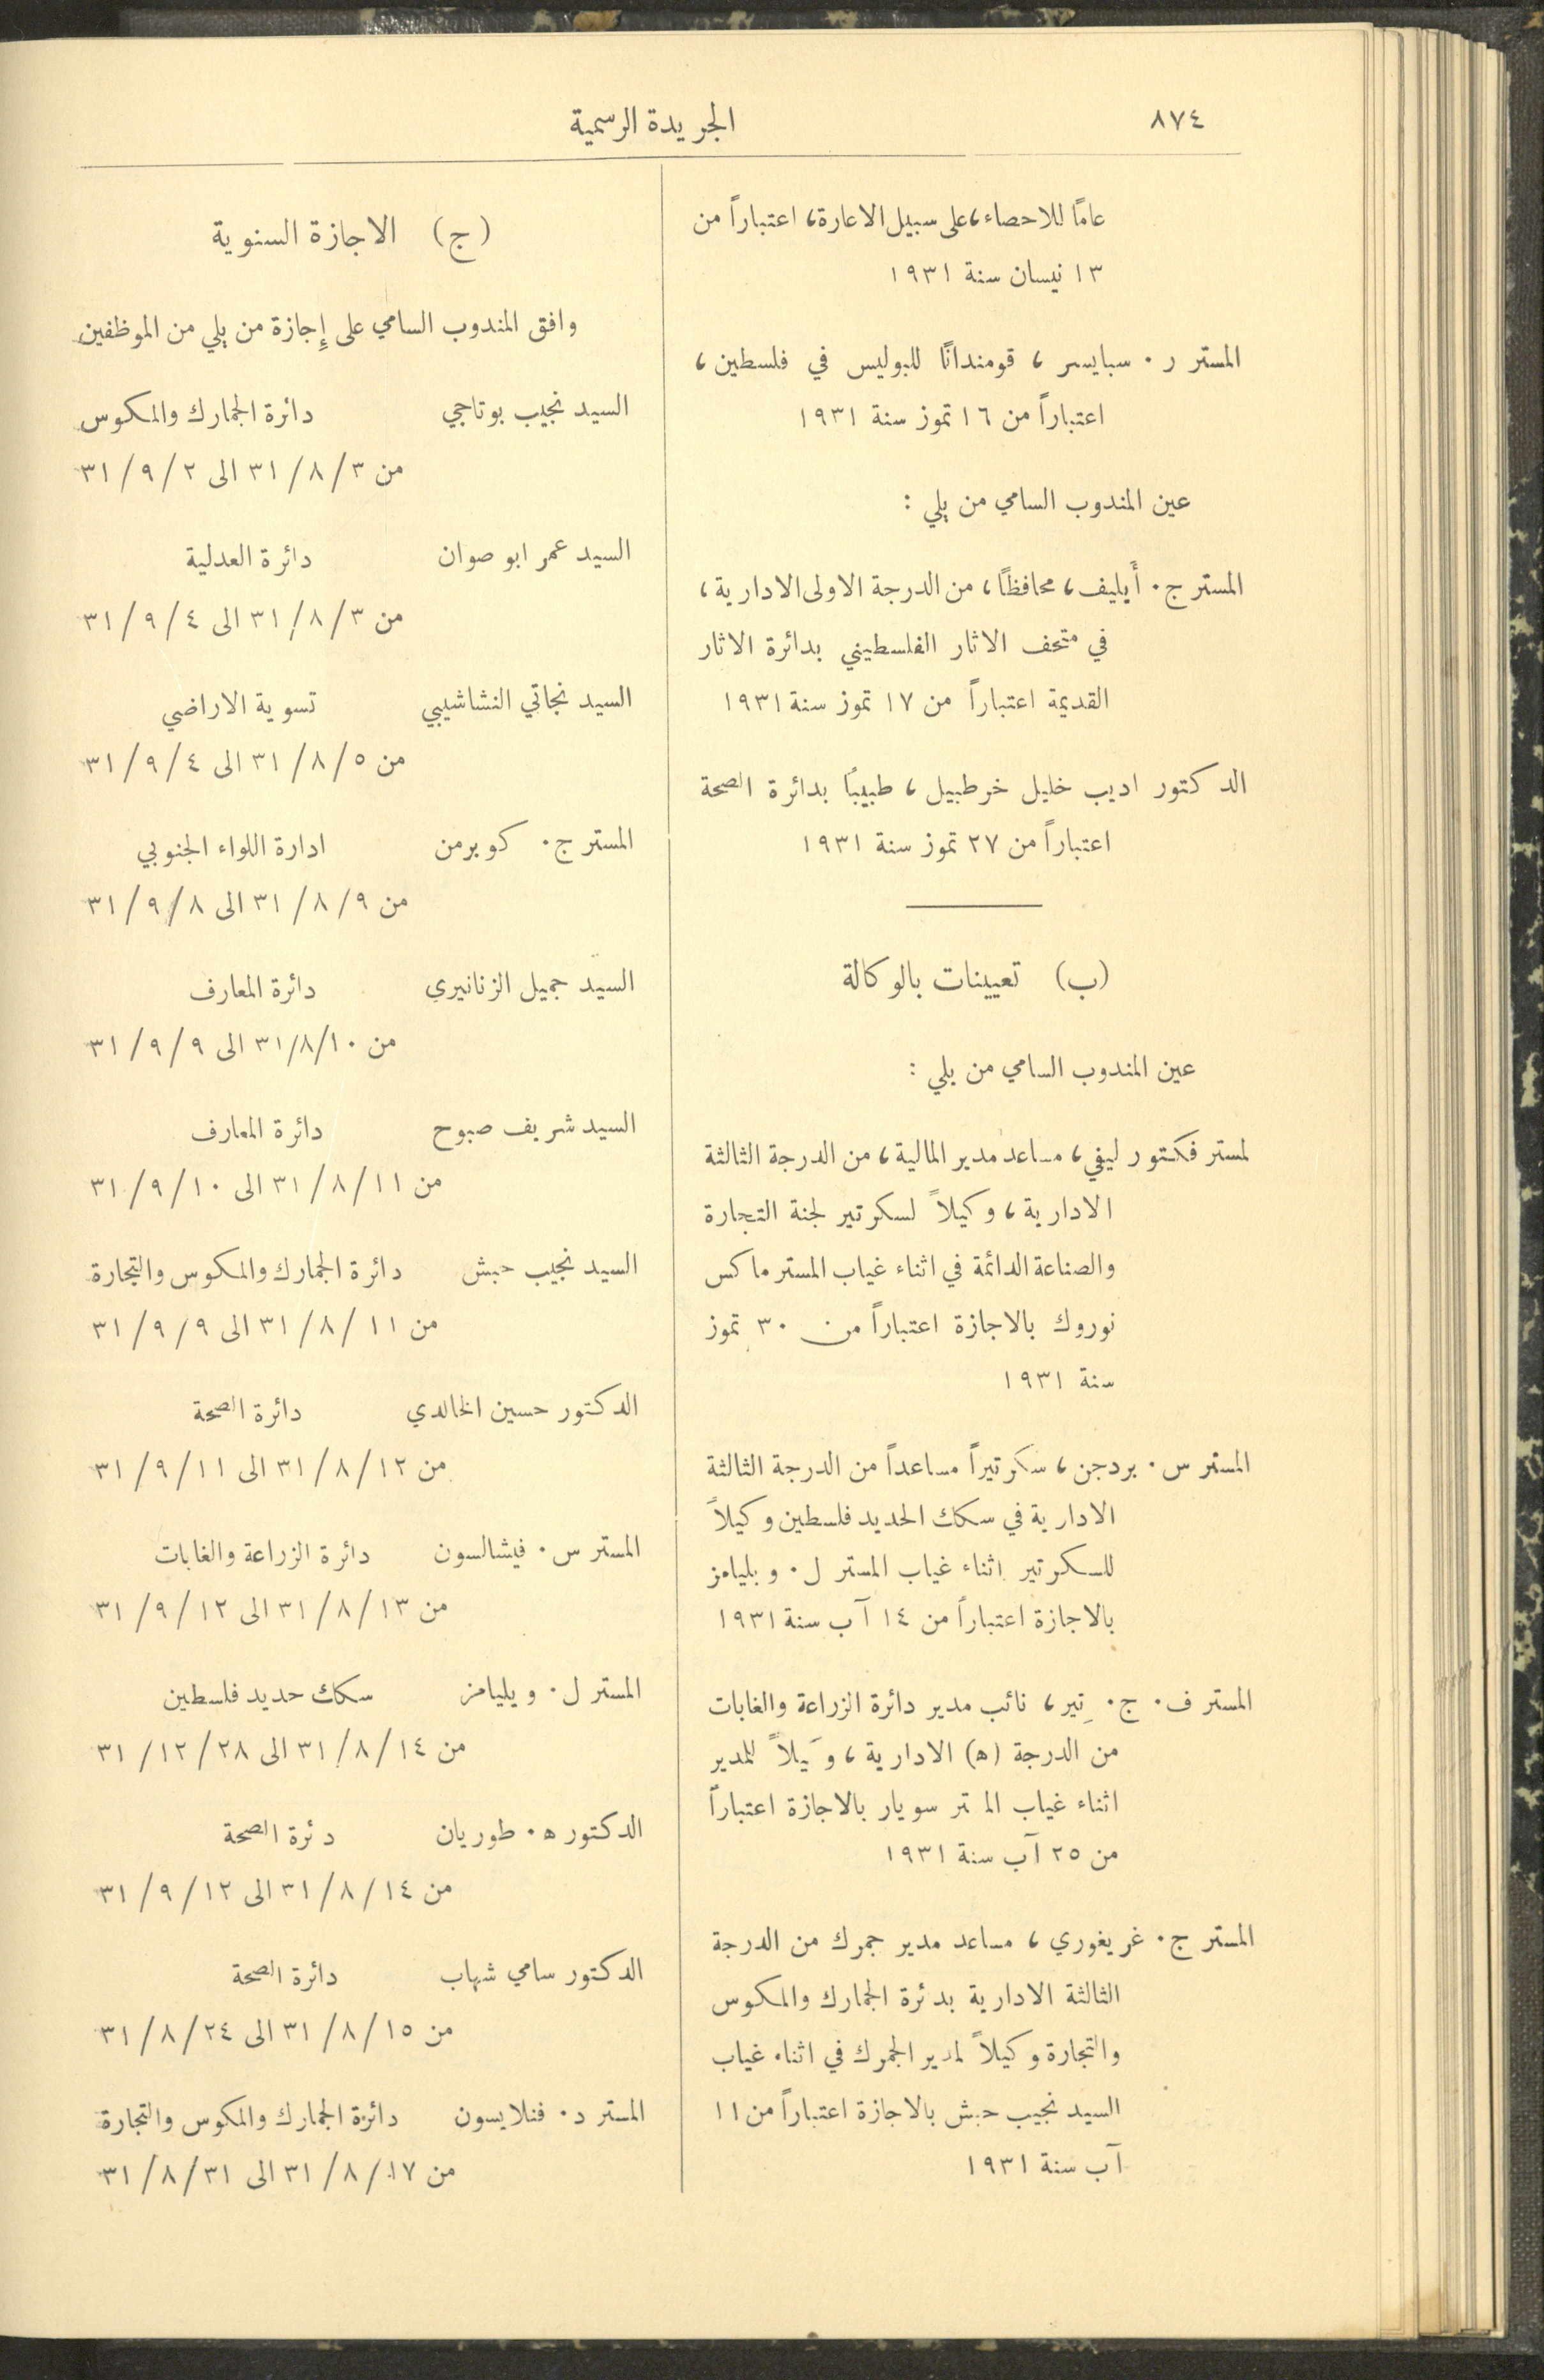 ٨٧٤
الجريدة الرسمية
عامًا للاحصاء، على سبيل الاعارة، اعتباراً من
١٣ نيسان سنة ١٩٣١
المستر ر. سبايسر، قومندانًا للبوليس في فلسطين،
اعتباراً من ١٦ تموز سنة ١٩٣١
عين المندوب السامي من يلي :
المستر ج. أيليف، محافظًا، من الدرجة الاولى الادارية،
في متحف الاثار الفلسطيني بدائرة الاثار
القديمة اعتباراً من ١٧ تموز سنة ١٩٣١
الدكتور اديب خليل خرطبيل، طبيبًا بدائرة الصحة
اعتباراً من ٢٧ تموز سنة ١٩٣١
(ب) تعيينات بالوكالة
عين المندوب السامي من يلي :
لمستر فكتور ليفي، مساعد مدير المالية، من الدرجة الثالثة
الادارية، وكيلاً لسكرتير لجنة التجارة
والصناعة الدائمة في اثناء غياب المستر ماكس
نوروك بالاجازة اعتباراً من ٣٠ تموز
سنة ١٩٣١
المستر س. بردجن، سكرتيراً مساعداً من الدرجة الثالثة
الادارية في سكك الحديد فلسطين وكيلاً
للسكرتير اثناء غياب المستر ل. ويليامز
بالاجازة اعتباراً من ١٤ آب سنة ١٩٣١
المستر ف. ج. تير، نائب مدير دائرة الزراعة والغابات
من الدرجة (ه) الادارية، و يلاً للمدير
اثناء غياب الم تر سويار بالاجازة اعتباراً
من ٢٥ آب سنة ١٩٣١
المستر ج. غريغوري، مساعد مدير جمرك من الدرجة
الثالثة الادارية بدئرة الجمارك والمكوس
والتجارة وكيلاً لمدير الجمرك في اثناء غياب
السيد نجيب حبش بالاجازة اعتباراً من ١١
آب سنة ١٩٣١
(ج) الاجازة السنوية
وافق المندوب السامي على إجازة من يلي من الموظفين
السيد نجيب بوتاجي دائرة الجمارك والمكوس
من ٣/٨/٣١ الى ٢/٩/٣١
السيد عمر ابو صوان دائرة العدلية
من ٣/٨/٣١ الى ٤/٩/٣١
السيد نجاتي النشاشيبي تسوية الاراضي
من ٥/٨/٣١ الى ٤/٩/٣١
المستر ج. كوبرمن ادارة اللواء الجنوبي
من ٩/٨/٣١ الى ٨/٩/٣١
السيد جميل الزنانيري دائرة المعارف
من ١٠/٨/٣١ الى ٩/٩/٣١
السيد شريف صبوح دائرة المعارف
من ١١/٨/٣١ الى ١٠/٩/٣١
السيد نجيب حبش دائرة الجمارك والمكوس والتجارة
من ١١/٨/٣١ الى ٩/٩/٣١
الدكتور حسين الخالدي دائرة الصحة
من ١٢/٨/٣١ الى ١١/٩/٣١
المستر س. فيشالسون دائرة الزراعة والغابات
من ١٣/٨/٣١ الى ١٢/٩/٣١
المستر ل. ويليامز سكك حديد فلسطين
من ١٤/٨/٣١ الى ٢٨/١٢/٣١
الدكتور ه. طوريان د ئرة الصحة
من ١٤/٨/٣١ الى ١٢/٩/٣١
الدكتور سامي شهاب دائرة الصحة
من ١٥/٨/٣١ الى ٢٤/٨/٣١
المستر د. فنلايسون دائرة الجمارك والمكوس والتجارة
من ١٧/٨/٣١ الى ٣١/٨/٣١